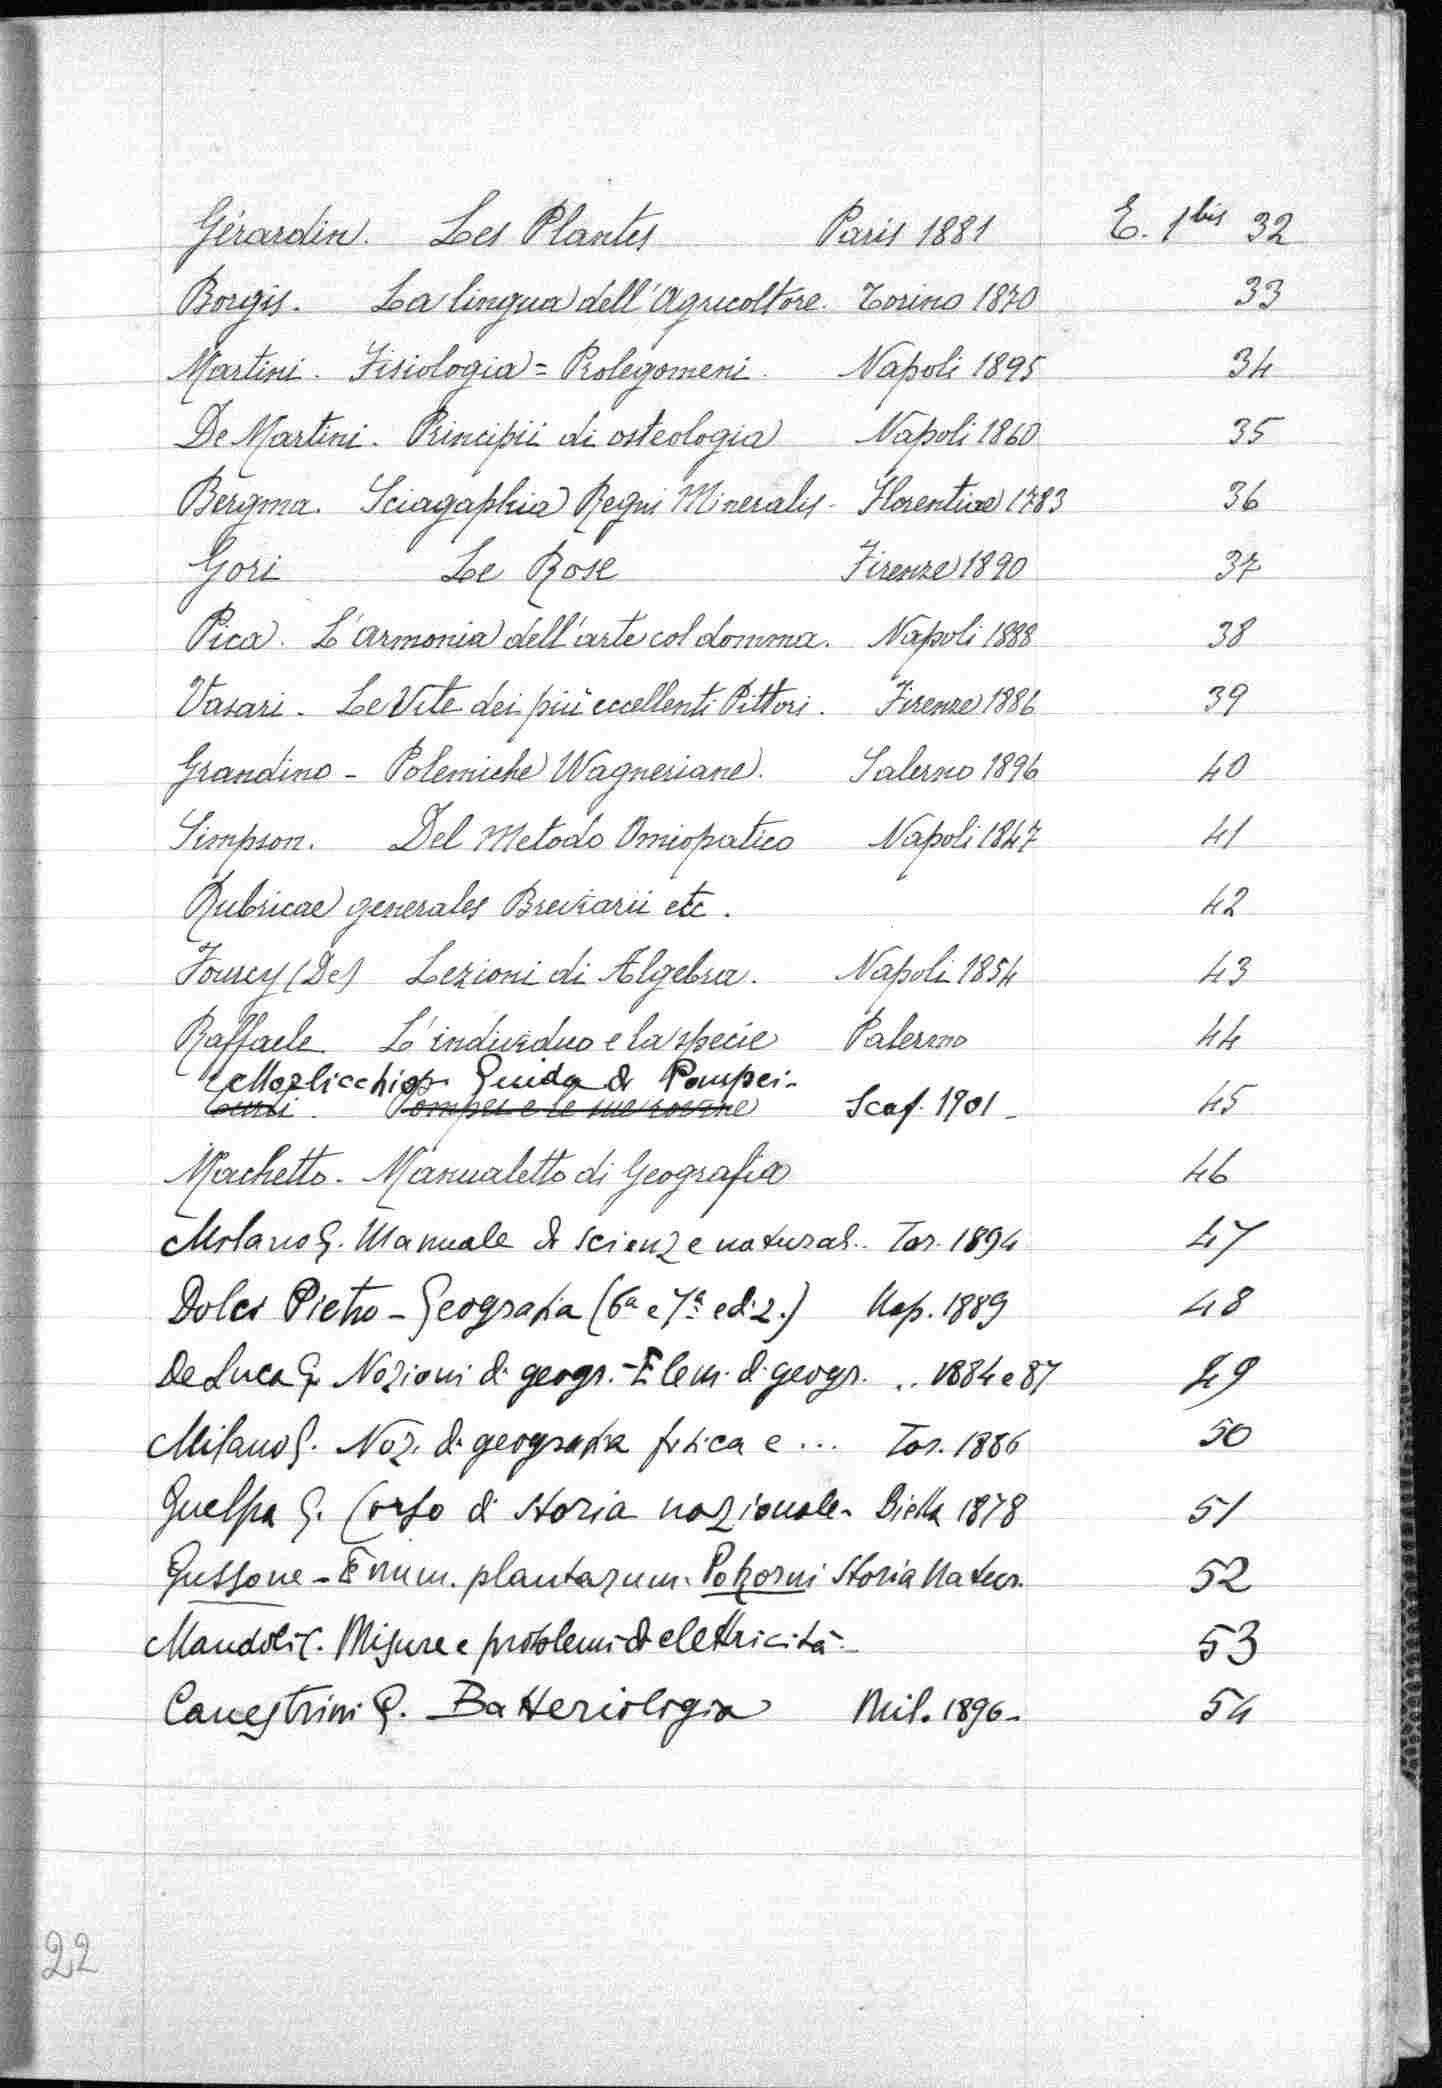 Gérardin. Les Plantes Paris 1881 E. 1bis 32
Borgis. La lingua dell'Agricoltore. Torino 1870 33
Martini. Fisiologia = Prolegomeni. Napoli 1895 34
De Martini. Principii di osteologia Napoli 1860 35
Bergma. Sciagaphia Regni Mineralis - Florentiae 1783 36
Gori Le Rose Firenze 1890 37
Pica. L'armonia dell'arte col domma. Napoli 1888 38
Vasari. Le Vite dei più eccellenti Pittori. Firenze 1886 39
Grandino - Polemiche Wagneriane. Salerno 1896 40
Simpson. Del Metodo Omiopatico Napoli 1847 41
Rubricae generales Breviarii etc. 42
Fourcy (De) Lezioni di Algebra. Napoli 1854 43
Raffaele L'individuo e la specie Palermo 44
Guida di Pompei -
Pompei e le sue rovine Scaf. 1901 - 45
Machetto. Manualetto di Geografia 46
Milano G. Manuale di scienze natural.. Tor. 1894 47
Dolci Pietro - Geografia (6a e 7a ediz.) Nap. 1889 48
De Luca G. Nozioni di geogr. - Elem. di geogr. .. 1884 e 87 49
Milano G. Noz. di geografia fisica e ... Tor. 1886 50
Guelpa G. Corso di storia nazionale - Biella 1878 51
Gussone - Enum. plantarum. Pokorni Storia Natur. 52
Mandoli C. Misure e problemi di elettricità - 53
Canestrini G. Batteriologia Mil. 1896 - 54
22